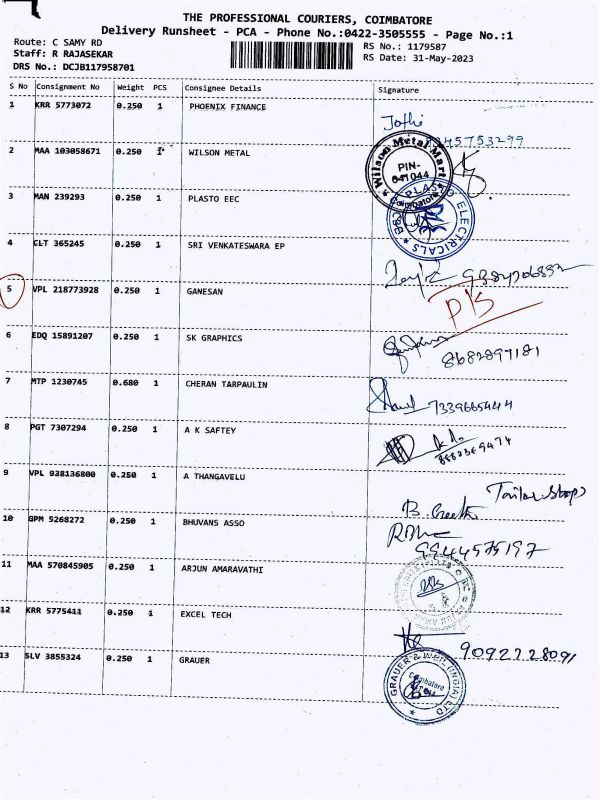 THE PROFESSIONAL COURIERS, COIMBATORE
Delivery Runsheet - PCA - Phone No.:0422-3505555 - Page No.:1
Route: C SAMY RD
RS No.: 1179587
Staff: R RAJASEKAR
RS Date: 31-May-2023
DRS No.: DCJB117958701
S No Consignment No Weight PCS Consignee Details Signature
1 KRR 5773072 0.250 1 PHOENIX FINANCE
2 MAA 103058671 0.250 1 WILSON METAL
Wilson Metal Mart
PIN-
641044
Coimbatore
3 MAN 239293 0.250 1 PLASTO EEC
PLASTO ELECTRICALS
4 CLT 365245 0.250 1 SRI VENKATESWARA EP
5 VPL 218773928 0.250 1 GANESAN
6 EDQ 15891207 0.250 1 SK GRAPHICS
8682897181
7 MTP 1230745 0.680 1 CHERAN TARPAULIN
7339665444
8 PGT 7307294 0.250 1 A K SAFTEY
9 VPL 938136800 0.250 1 A THANGAVELU
Tailor shop
10 GPM 5268272 0.250 1 BHUVANS ASSO
9944575197
11 MAA 570845905 0.250 1 ARJUN AMARAVATHI
12 KRR 5775411 0.250 1 EXCEL TECH
9092228091
13 SLV 3855324 0.250 1 GRAUER
GRAUER & WEIL (INDIA) LTD
Coimbatore